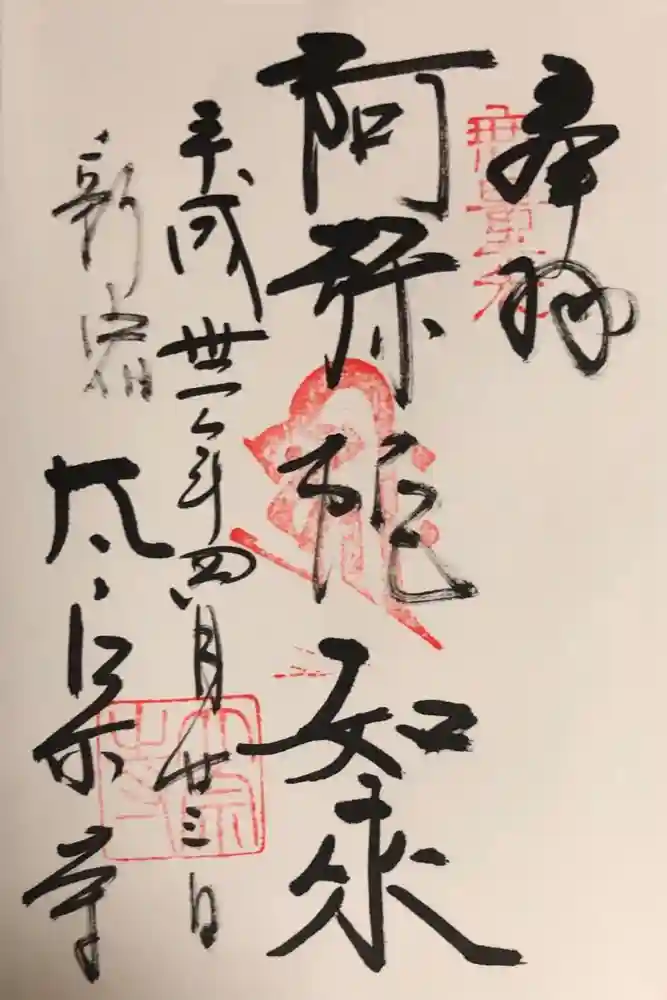 奉拝
阿弥陀如来
平成丗一年四月廿三日
新宿 太宗寺